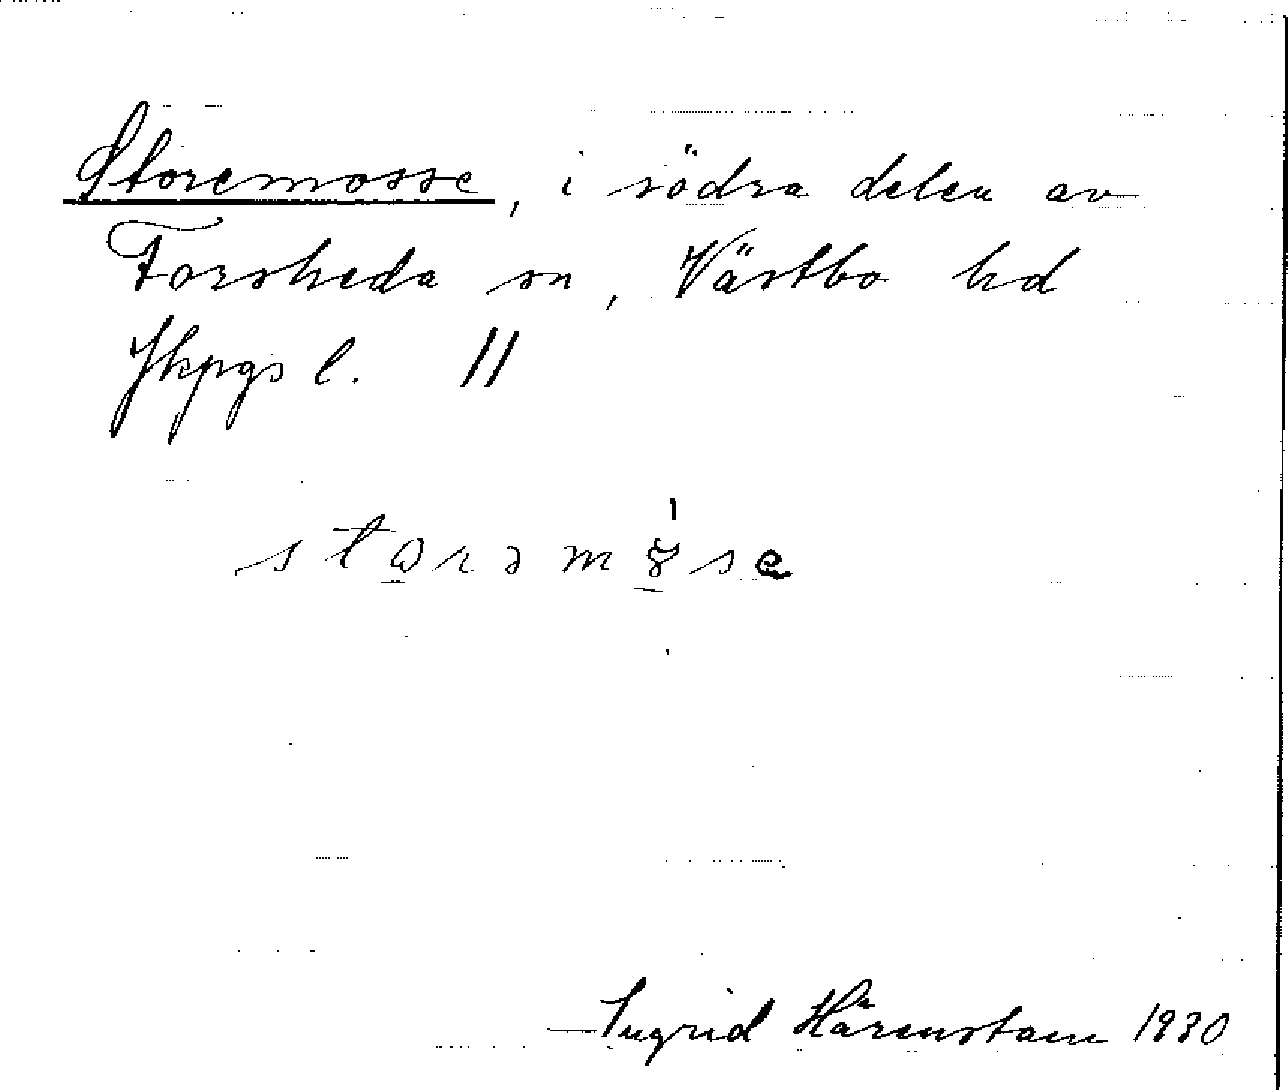 Storemosse, i södra delen av
Forsheda sn, Västbo hd
Jkpgs l. 11
Ingrid Härenstam 1930